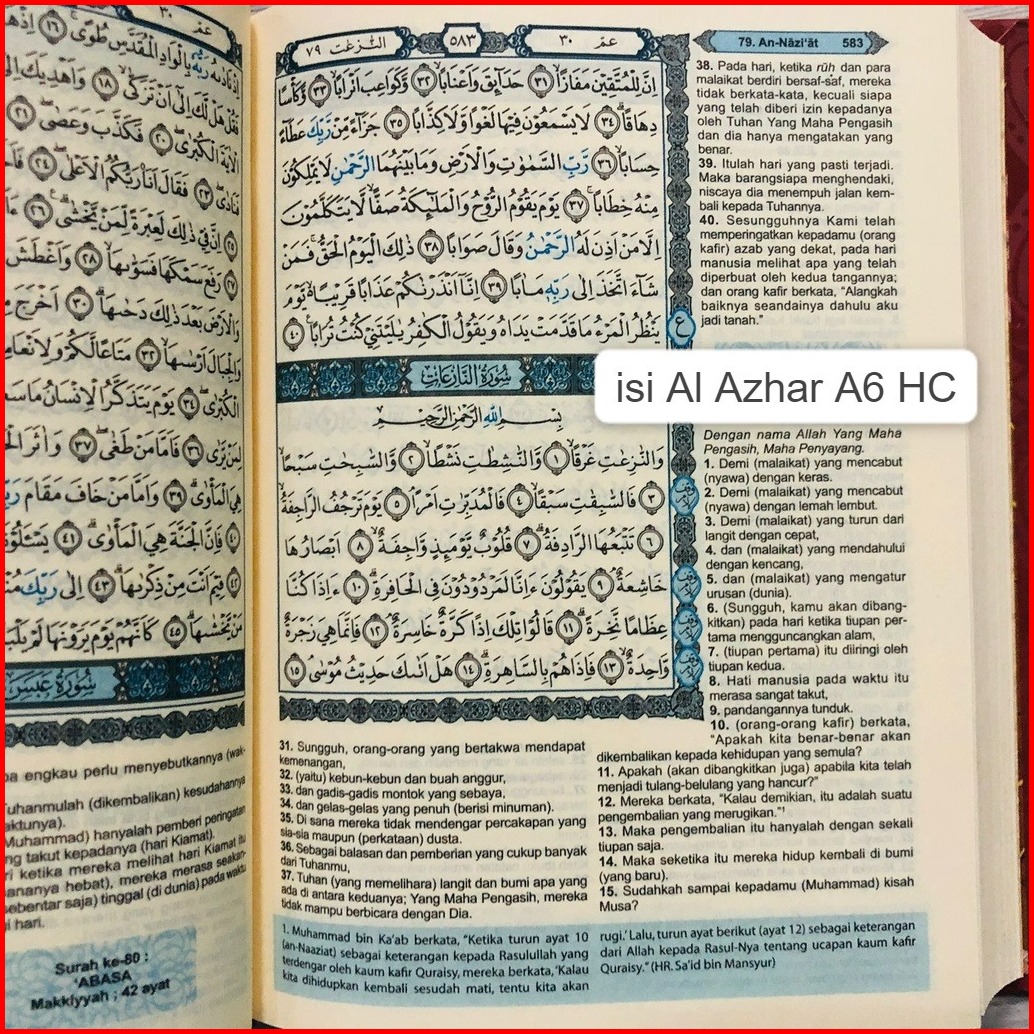 عمّ ٣٠
اِذْ نَادٰىهُ رَبُّهٗ بِالْوَادِ الْمُقَدَّسِ طُوًىۚ ١٦
فَقُلْ هَلْ لَّكَ اِلٰٓى اَنْ تَزَكّٰىۙ ١٨ وَاَهْدِيَكَ
الْاٰيَةَ الْكُبْرٰىۖ ٢٠ فَكَذَّبَ وَعَصٰىۖ ٢١
فَنَادٰىۖ ٢٣ فَقَالَ اَنَا۠ رَبُّكُمُ الْاَعْلٰىۖ ٢٤
٢٥ اِنَّ فِيْ ذٰلِكَ لَعِبْرَةً لِّمَنْ يَّخْشٰى ٢٦
٢٧ رَفَعَ سَمْكَهَا فَسَوّٰىهَاۙ ٢٨ وَاَغْطَشَ
وَالْاَرْضَ بَعْدَ ذٰلِكَ دَحٰىهَاۗ ٣٠ اَخْرَجَ
وَالْجِبَالَ اَرْسٰىهَاۙ ٣٢ مَتَاعًا لَّكُمْ وَلِاَنْعَامِ
الْكُبْرٰىۖ ٣٤ يَوْمَ يَتَذَكَّرُ الْاِنْسَانُ مَا سَعٰى
لِمَنْ يَّرٰى ٣٦ فَاَمَّا مَنْ طَغٰىۖ ٣٧ وَاٰثَرَ
هِيَ الْمَأْوٰىۗ ٣٩ وَاَمَّا مَنْ خَافَ مَقَامَ
٤٠ فَاِنَّ الْجَنَّةَ هِيَ الْمَأْوٰىۗ ٤١ يَسْـَٔلُوْنَ
٤٢ فِيْمَ اَنْتَ مِنْ ذِكْرٰىهَاۗ ٤٣ اِلٰى رَبِّكَ
مَنْ يَّخْشٰىهَاۗ ٤٥ كَاَنَّهُمْ يَوْمَ يَرَوْنَهَا لَمْ
سُوْرَةُ عَبَسَ
engkau perlu menyebutkannya (wak-
Tuhanmulah (dikembalikan) kesudahannya
aktunya).
Muhammad) hanyalah pemberi peringatan
takut kepadanya (hari Kiamat).
ketika mereka melihat hari Kiamat itu
hebat), mereka merasa seakan-
sebentar saja) tinggal (di dunia) pada waktu
hari.
Surah ke-80 :
'ABASA
Makkiyyah ; 42 ayat
عمّ ٣٠
٥٨٣
النّٰزعٰت ٧٩
اِنَّ لِلْمُتَّقِيْنَ مَفَازًاۙ ٣١ حَدَاۤىِٕقَ وَاَعْنَابًاۙ ٣٢ وَّكَوَاعِبَ اَتْرَابًاۙ ٣٣ وَّكَأْسًا
دِهَاقًاۗ ٣٤ لَا يَسْمَعُوْنَ فِيْهَا لَغْوًا وَّلَا كِذّٰبًا ٣٥ جَزَاۤءً مِّنْ رَّبِّكَ عَطَاۤءً
حِسَابًاۙ ٣٦ رَّبِّ السَّمٰوٰتِ وَالْاَرْضِ وَمَا بَيْنَهُمَا الرَّحْمٰنِ لَا يَمْلِكُوْنَ
مِنْهُ خِطَابًاۚ ٣٧ يَوْمَ يَقُوْمُ الرُّوْحُ وَالْمَلٰۤىِٕكَةُ صَفًّاۙ لَّا يَتَكَلَّمُوْنَ
اِلَّا مَنْ اَذِنَ لَهُ الرَّحْمٰنُ وَقَالَ صَوَابًا ٣٨ ذٰلِكَ الْيَوْمُ الْحَقُّۚ فَمَنْ
شَاۤءَ اتَّخَذَ اِلٰى رَبِّهٖ مَاٰبًا ٣٩ اِنَّآ اَنْذَرْنٰكُمْ عَذَابًا قَرِيْبًا ەۙ يَّوْمَ
يَنْظُرُ الْمَرْءُ مَا قَدَّمَتْ يَدَاهُ وَيَقُوْلُ الْكٰفِرُ يٰلَيْتَنِيْ كُنْتُ تُرَابًا ٤٠
ع
سُوْرَةُ النَّازِعَاتِ
بِسْمِ اللّٰهِ الرَّحْمٰنِ الرَّحِيْمِ
وَالنّٰزِعٰتِ غَرْقًاۙ ١ وَّالنّٰشِطٰتِ نَشْطًاۙ ٢ وَّالسّٰبِحٰتِ سَبْحًاۙ
٣ فَالسّٰبِقٰتِ سَبْقًاۙ ٤ فَالْمُدَبِّرٰتِ اَمْرًاۘ ٥ يَوْمَ تَرْجُفُ الرَّاجِفَةُۙ
٦ تَتْبَعُهَا الرَّادِفَةُۗ ٧ قُلُوْبٌ يَّوْمَىِٕذٍ وَّاجِفَةٌۙ ٨ اَبْصَارُهَا
خَاشِعَةٌۘ ٩ يَقُوْلُوْنَ ءَاِنَّا لَمَرْدُوْدُوْنَ فِى الْحَافِرَةِۗ ١٠ ءَاِذَا كُنَّا
عِظَامًا نَّخِرَةًۗ ١١ قَالُوْا تِلْكَ اِذًا كَرَّةٌ خَاسِرَةٌۘ ١٢ فَاِنَّمَا هِيَ زَجْرَةٌ
وَّاحِدَةٌۙ ١٣ فَاِذَا هُمْ بِالسَّاهِرَةِۗ ١٤ هَلْ اَتٰىكَ حَدِيْثُ مُوْسٰىۘ ١٥
79. An-Nāzi'āt 583
38. Pada hari, ketika rūh dan para
malaikat berdiri bersaf-saf, mereka
tidak berkata-kata, kecuali siapa
yang telah diberi izin kepadanya
oleh Tuhan Yang Maha Pengasih
dan dia hanya mengatakan yang
benar.
39. Itulah hari yang pasti terjadi.
Maka barangsiapa menghendaki,
niscaya dia menempuh jalan kem-
bali kepada Tuhannya.
40. Sesungguhnya Kami telah
memperingatkan kepadamu (orang
kafir) azab yang dekat, pada hari
manusia melihat apa yang telah
diperbuat oleh kedua tangannya;
dan orang kafir berkata, "Alangkah
baiknya seandainya dahulu aku
jadi tanah."
isi Al Azhar A6 HC
Dengan nama Allah Yang Maha
Pengasih, Maha Penyayang.
1. Demi (malaikat) yang mencabut
(nyawa) dengan keras.
2. Demi (malaikat) yang mencabut
(nyawa) dengan lemah lembut.
3. Demi (malaikat) yang turun dari
langit dengan cepat,
4. dan (malaikat) yang mendahului
dengan kencang,
5. dan (malaikat) yang mengatur
urusan (dunia).
6. (Sungguh, kamu akan dibang-
kitkan) pada hari ketika tiupan per-
tama mengguncangkan alam,
7. (tiupan pertama) itu diiringi oleh
tiupan kedua.
8. Hati manusia pada waktu itu
merasa sangat takut,
9. pandangannya tunduk.
10. (orang-orang kafir) berkata,
"Apakah kita benar-benar akan
dikembalikan kepada kehidupan yang semula?
11. Apakah (akan dibangkitkan juga) apabila kita telah
menjadi tulang-belulang yang hancur?"
12. Mereka berkata, "Kalau demikian, itu adalah suatu
pengembalian yang merugikan."¹
13. Maka pengembalian itu hanyalah dengan sekali
tiupan saja.
14. Maka seketika itu mereka hidup kembali di bumi
(yang baru).
15. Sudahkah sampai kepadamu (Muhammad) kisah
Musa?
31. Sungguh, orang-orang yang bertakwa mendapat
kemenangan,
32. (yaitu) kebun-kebun dan buah anggur,
33. dan gadis-gadis montok yang sebaya,
34. dan gelas-gelas yang penuh (berisi minuman).
35. Di sana mereka tidak mendengar percakapan yang
sia-sia maupun (perkataan) dusta.
36. Sebagai balasan dan pemberian yang cukup banyak
dari Tuhanmu,
37. Tuhan (yang memelihara) langit dan bumi apa yang
ada di antara keduanya; Yang Maha Pengasih, mereka
tidak mampu berbicara dengan Dia.
1. Muhammad bin Ka'ab berkata, "Ketika turun ayat 10
(an-Naaziat) sebagai keterangan kepada Rasulullah yang
terdengar oleh kaum kafir Quraisy, mereka berkata, 'Kalau
kita dihidupkan kembali sesudah mati, tentu kita akan
rugi.' Lalu, turun ayat berikut (ayat 12) sebagai keterangan
dari Allah kepada Rasul-Nya tentang ucapan kaum kafir
Quraisy." (HR. Sa'id bin Mansyur)